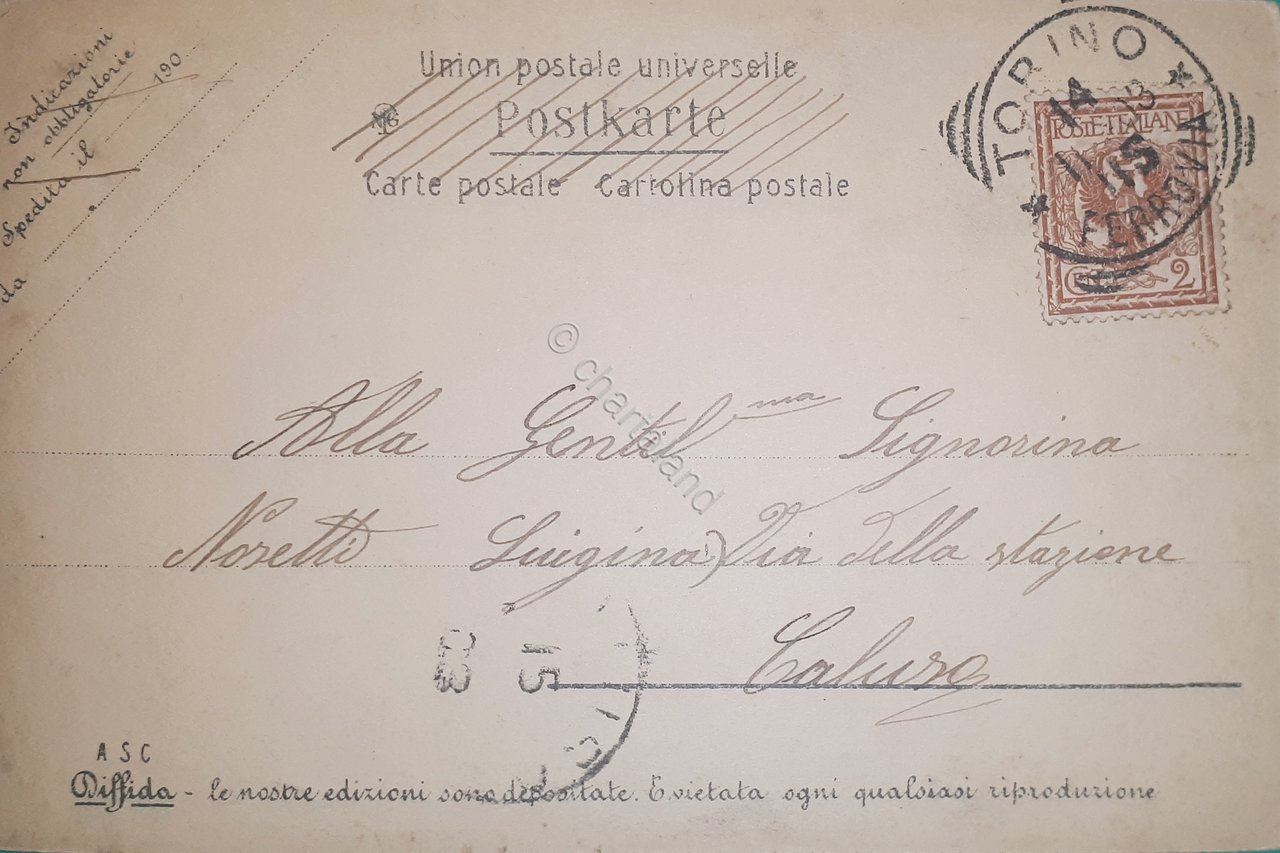 Indicazioni
non obbligatorie
Spedita il 190
da
Union postale universelle
Postkarte
Carte postale Cartolina postale
TORINO
14
11
FERROVIA
POSTE·ITALIANE
2
© chartaland
Alla Gentil ma Signorina
Luigina) Via della stazione
Caluso
15
A S C
Diffida - le nostre edizioni sono depositate. E vietata ogni qualsiasi riproduzione